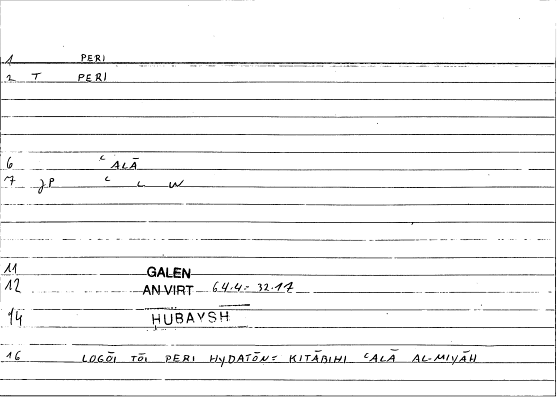 1 PERI
2 T PERI
6 ʿALĀ
7 jP ʿ L W
11 GALEN
12 AN.VIRT 64.4 = 32.17
14 ḤUBAYSH
16 LOGŌI TŌI PERI HYDATŌN = KITĀBIHI ʿALĀ AL-MIYĀH